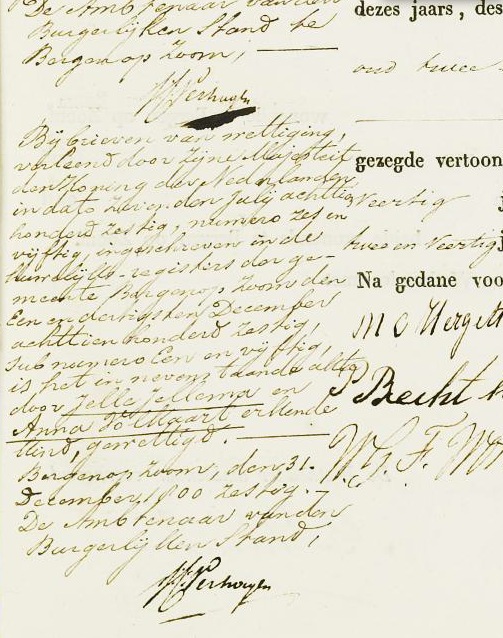 De Ambtenaar van den
Burgerlijken Stand te
Bergen op Zoom,
Bij brieven van wettiging,
verleend door Zijne Majesteit
den Koning der Nederlanden
in dato zeven den july achttien
honderd zestig, numero zes en
vijftig, ingeschreven in de
huwelijks-registers der ge-
meente Bergen op Zoom den
Een en dertigsten December
achttien honderd zestig,
sub numero Een en vijftig,
is het in nevenstaande akte
door Jelle Jellema en
Anna Folkaart erkende
kind, gewettigd.
Bergen op Zoom, den 31.
December 1800 zestig.
De Ambtenaar van den
Burgerlijken Stand,
dezes jaars, des
oud twee
gezegde vertoon
veertig j
twee en veertig j
Na gedane voo
Becht
W. G. F.